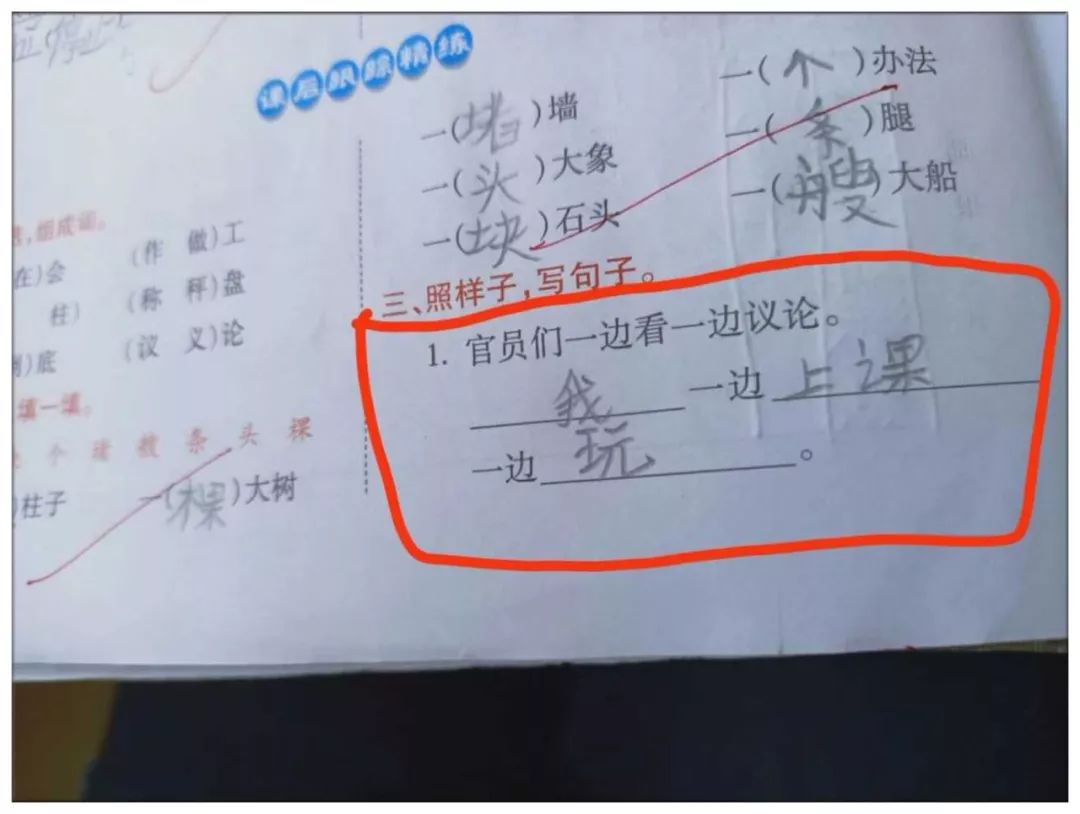 课后跟踪精练
一(堵)墙
一(个)办法
一(头)大象
一(条)腿
一(块)石头
一(艘)大船
组成词。
在)会
(作 做)工
柱)
(称 秤)盘
)底
(议 义)论
填一填。
个 堵 艘 条 头 棵
)柱子
一(棵)大树
三、照样子,写句子。
1. 官员们一边看一边议论。
我 一边 上课
一边 玩 。